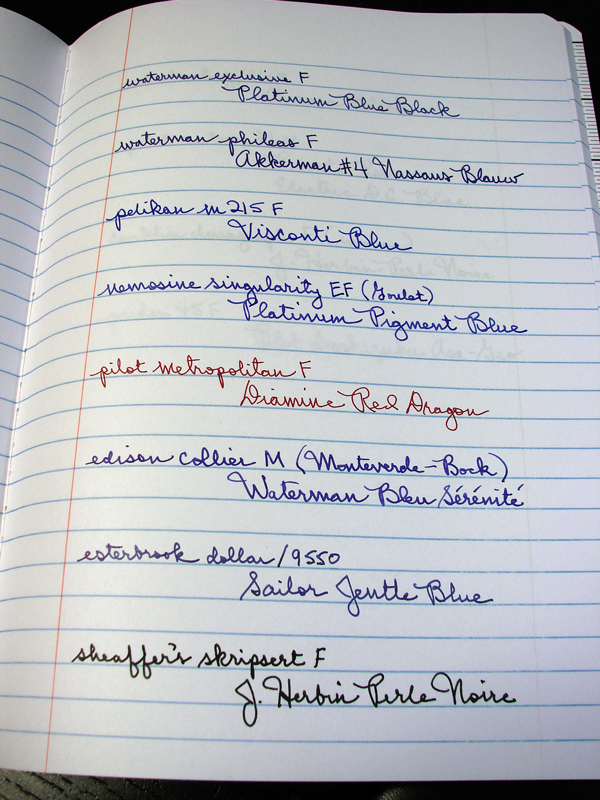 waterman exclusive F
Platinum Blue Black
waterman phileas F
Akkerman #4 Nassaus Blauw
pelikan m215 F
Visconti Blue
nemosine singularity EF (Goulet)
Platinum Pigment Blue
pilot metropolitan F
Diamine Red Dragon
edison collier M (Monteverde-Bock)
Waterman Bleu Sérénité
esterbrook dollar/9550
Sailor Jentle Blue
sheaffer's skripsert F
J. Herbin Perle Noire